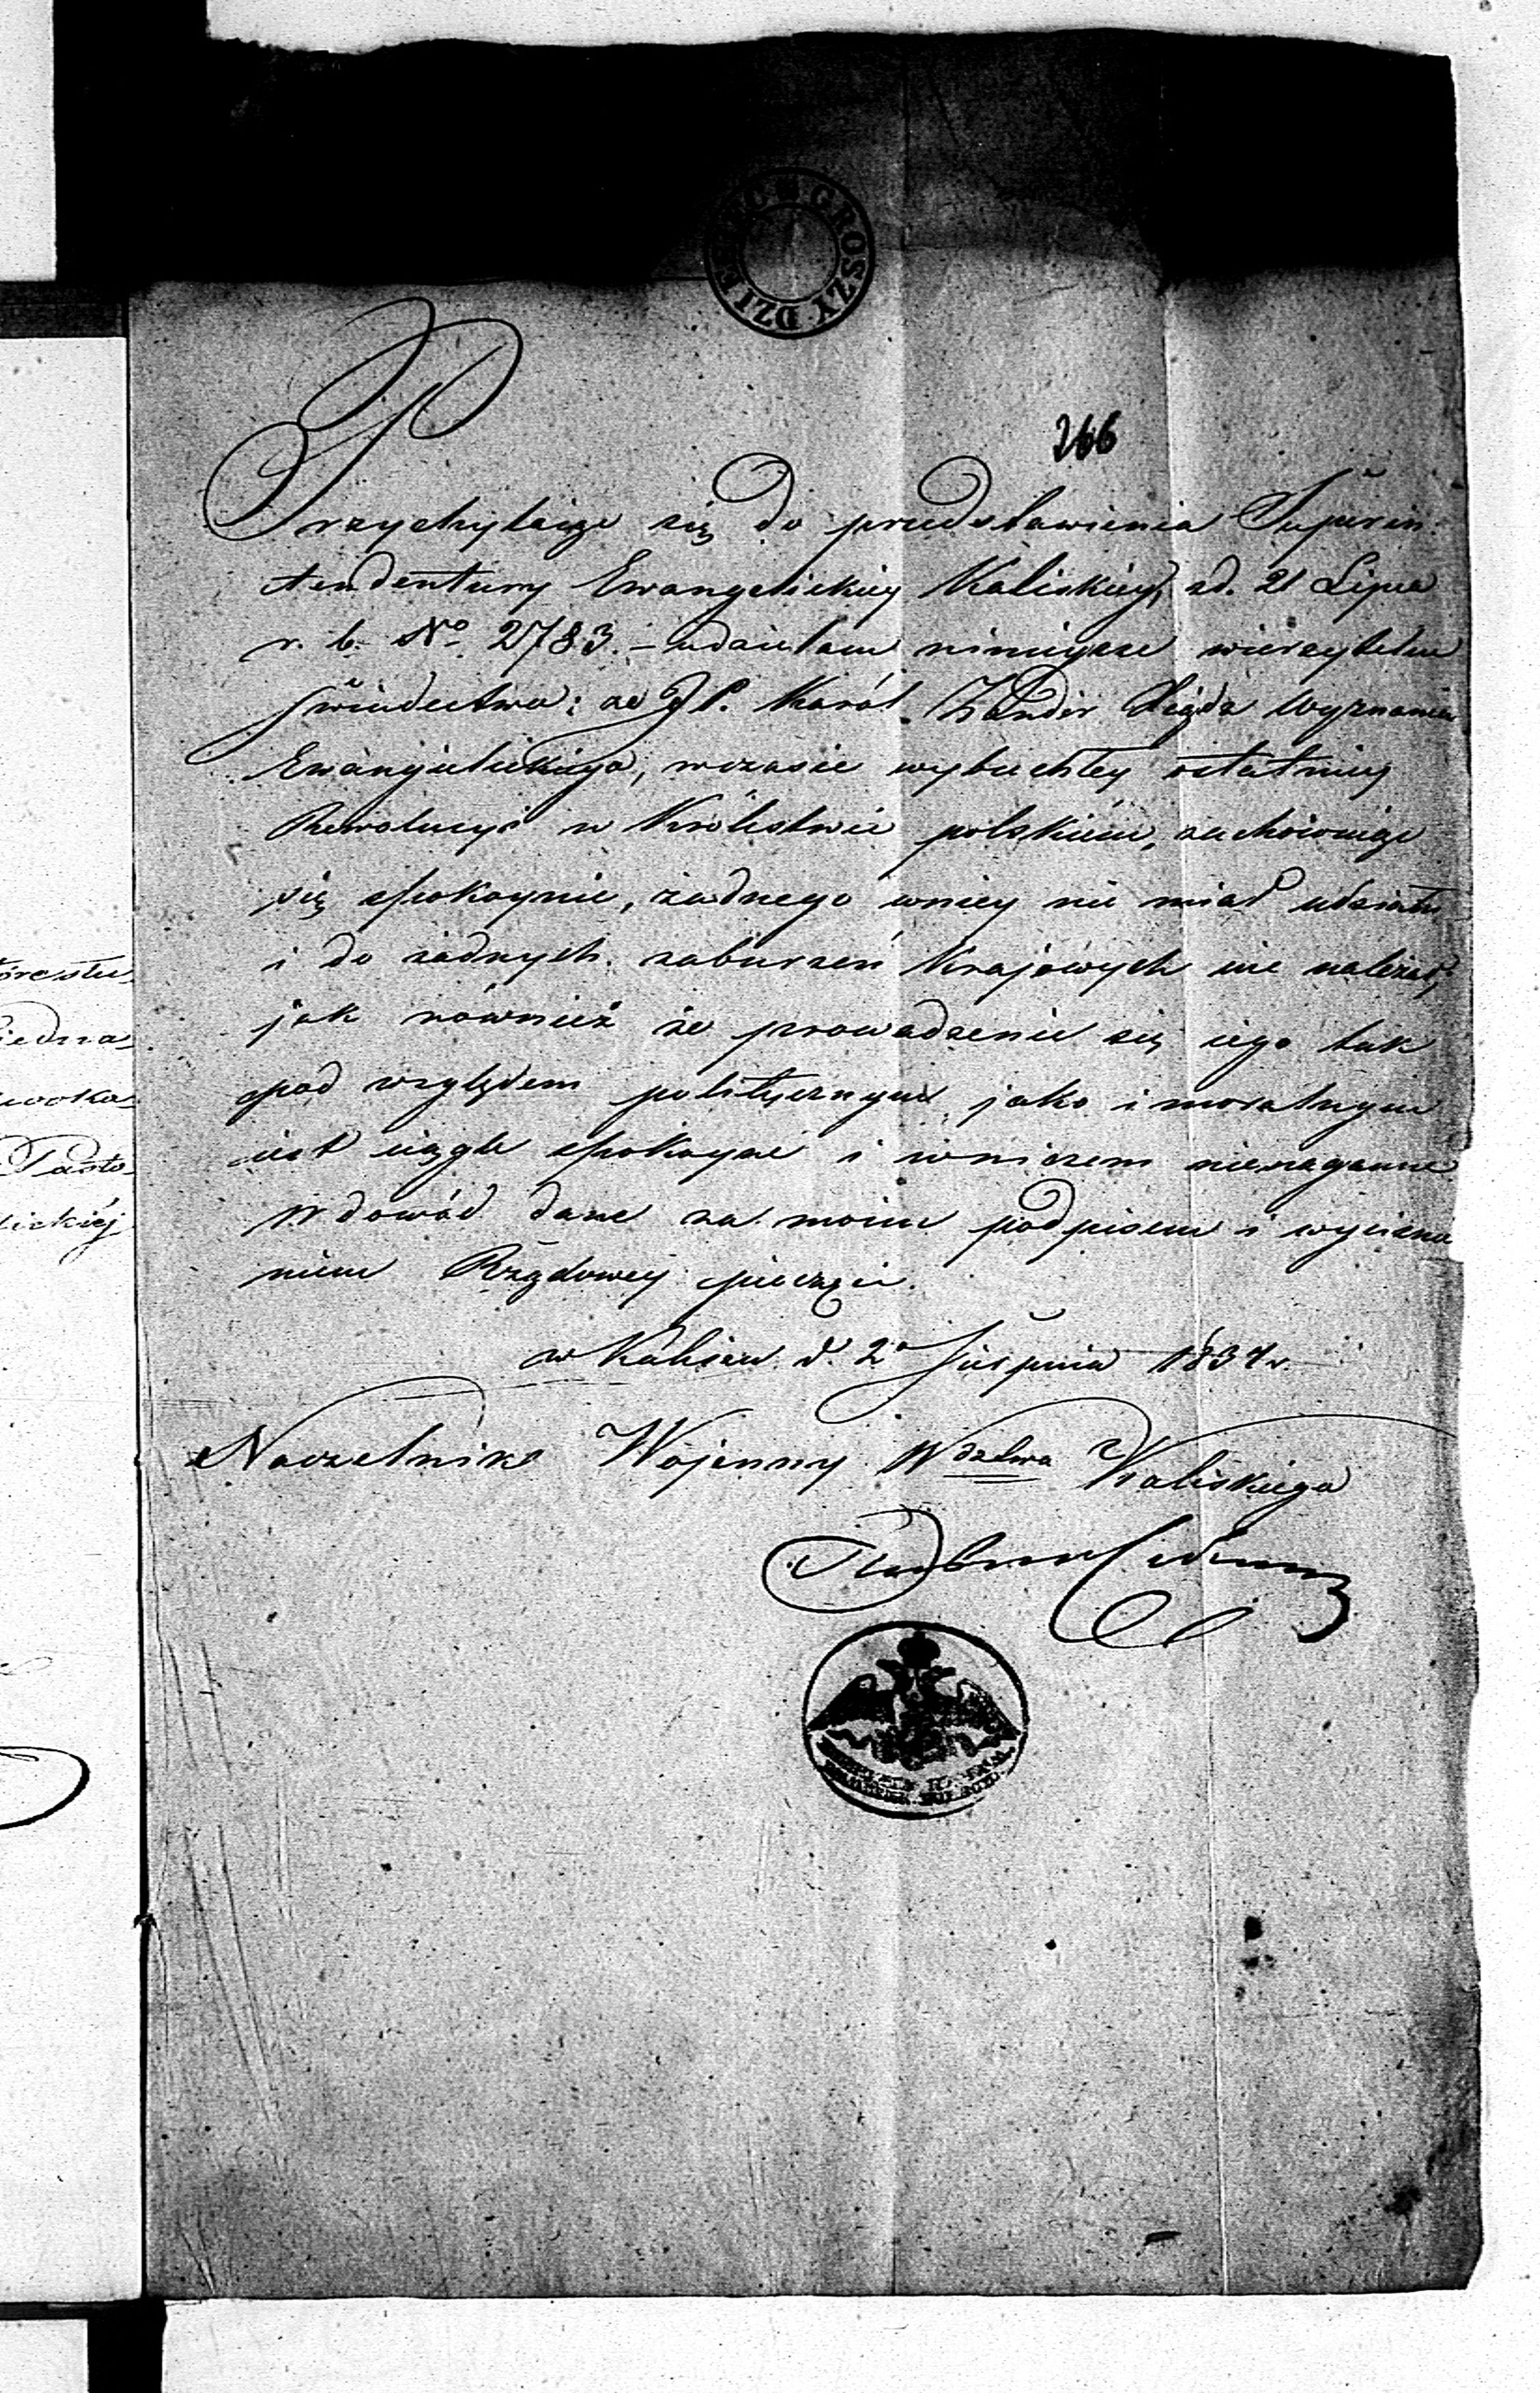 DZIESIĘC GROSZY
266
Przychylaiąc się do przedstawienia Superin-
tendentury Ewangelickiey Kaliskiey, zd. 21 Lipca
r. b. No 2783. – udzielam ninieysze wierzytelne
świadectwo: że JP. Karól Zander Xiądz Wyznania
Ewangielickiego, wczasie wybuchłey ostatniey
Rewolucyi w Królestwie polskiem, zachowuiąc
się spokoynie, żadnego wniey nie miał udziału
i do żadnych zaburzeń Krajowych nie należał,
jak również że prowadzenie się iego tak
pod względem politycznym jako i moralnym
iest ciągle spokoyne i wniczem nienaganne
W dowód daie za moim podpisem i wyciśnie
niem Rządowey pieczęci.
w Kaliszu d. 2 Sierpnia 1834 r.
Naczelnik Wojenny Wdztwa Kaliskiego